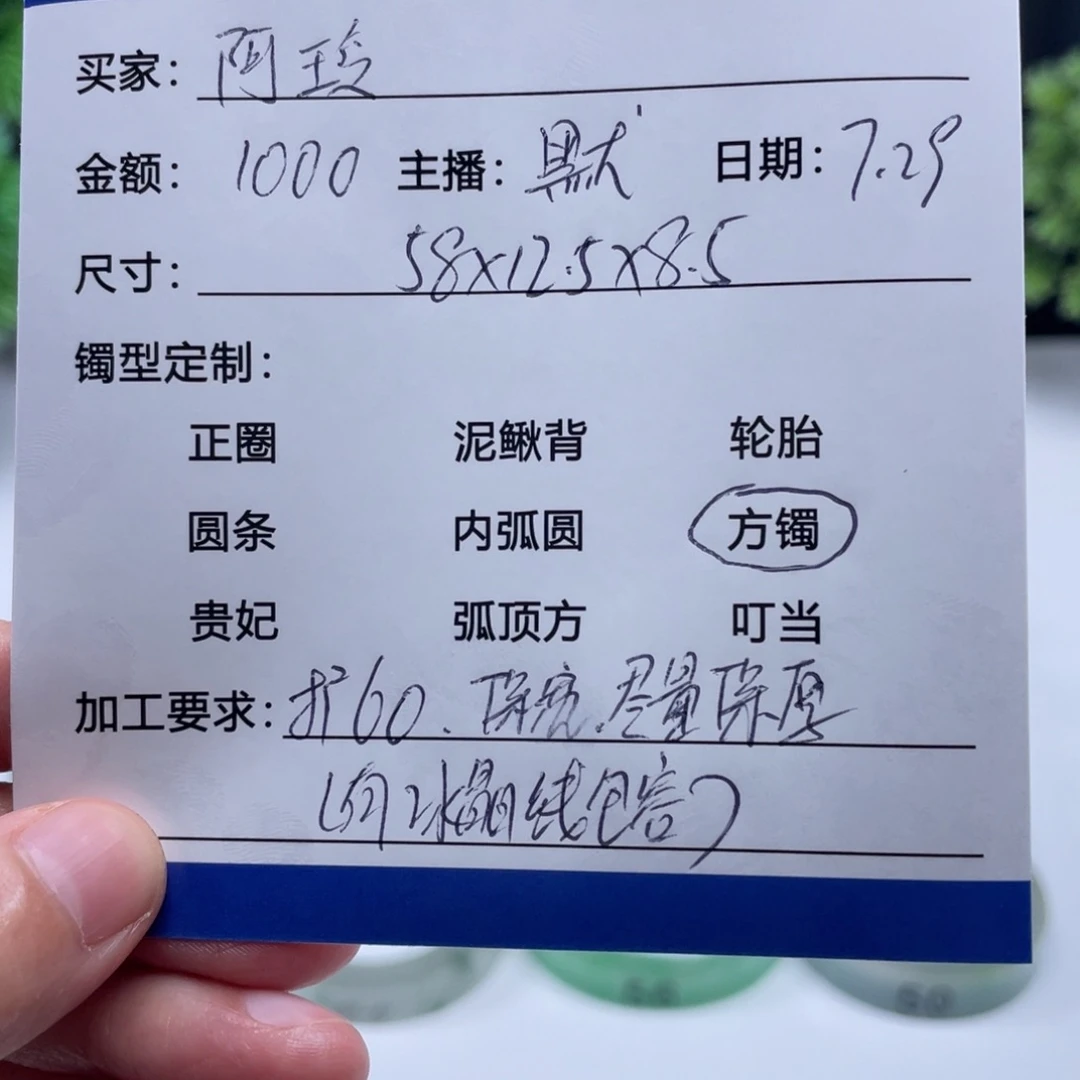 买家：阿玹
金额：1000 主播：默 日期：7.29
尺寸：58x12.5x8.5
镯型定制：
正圈 泥鳅背 轮胎
圆条 内弧圆 方镯
贵妃 弧顶方 叮当
加工要求：扩60、保宽、尽量保厚
（有冰晶线包容）